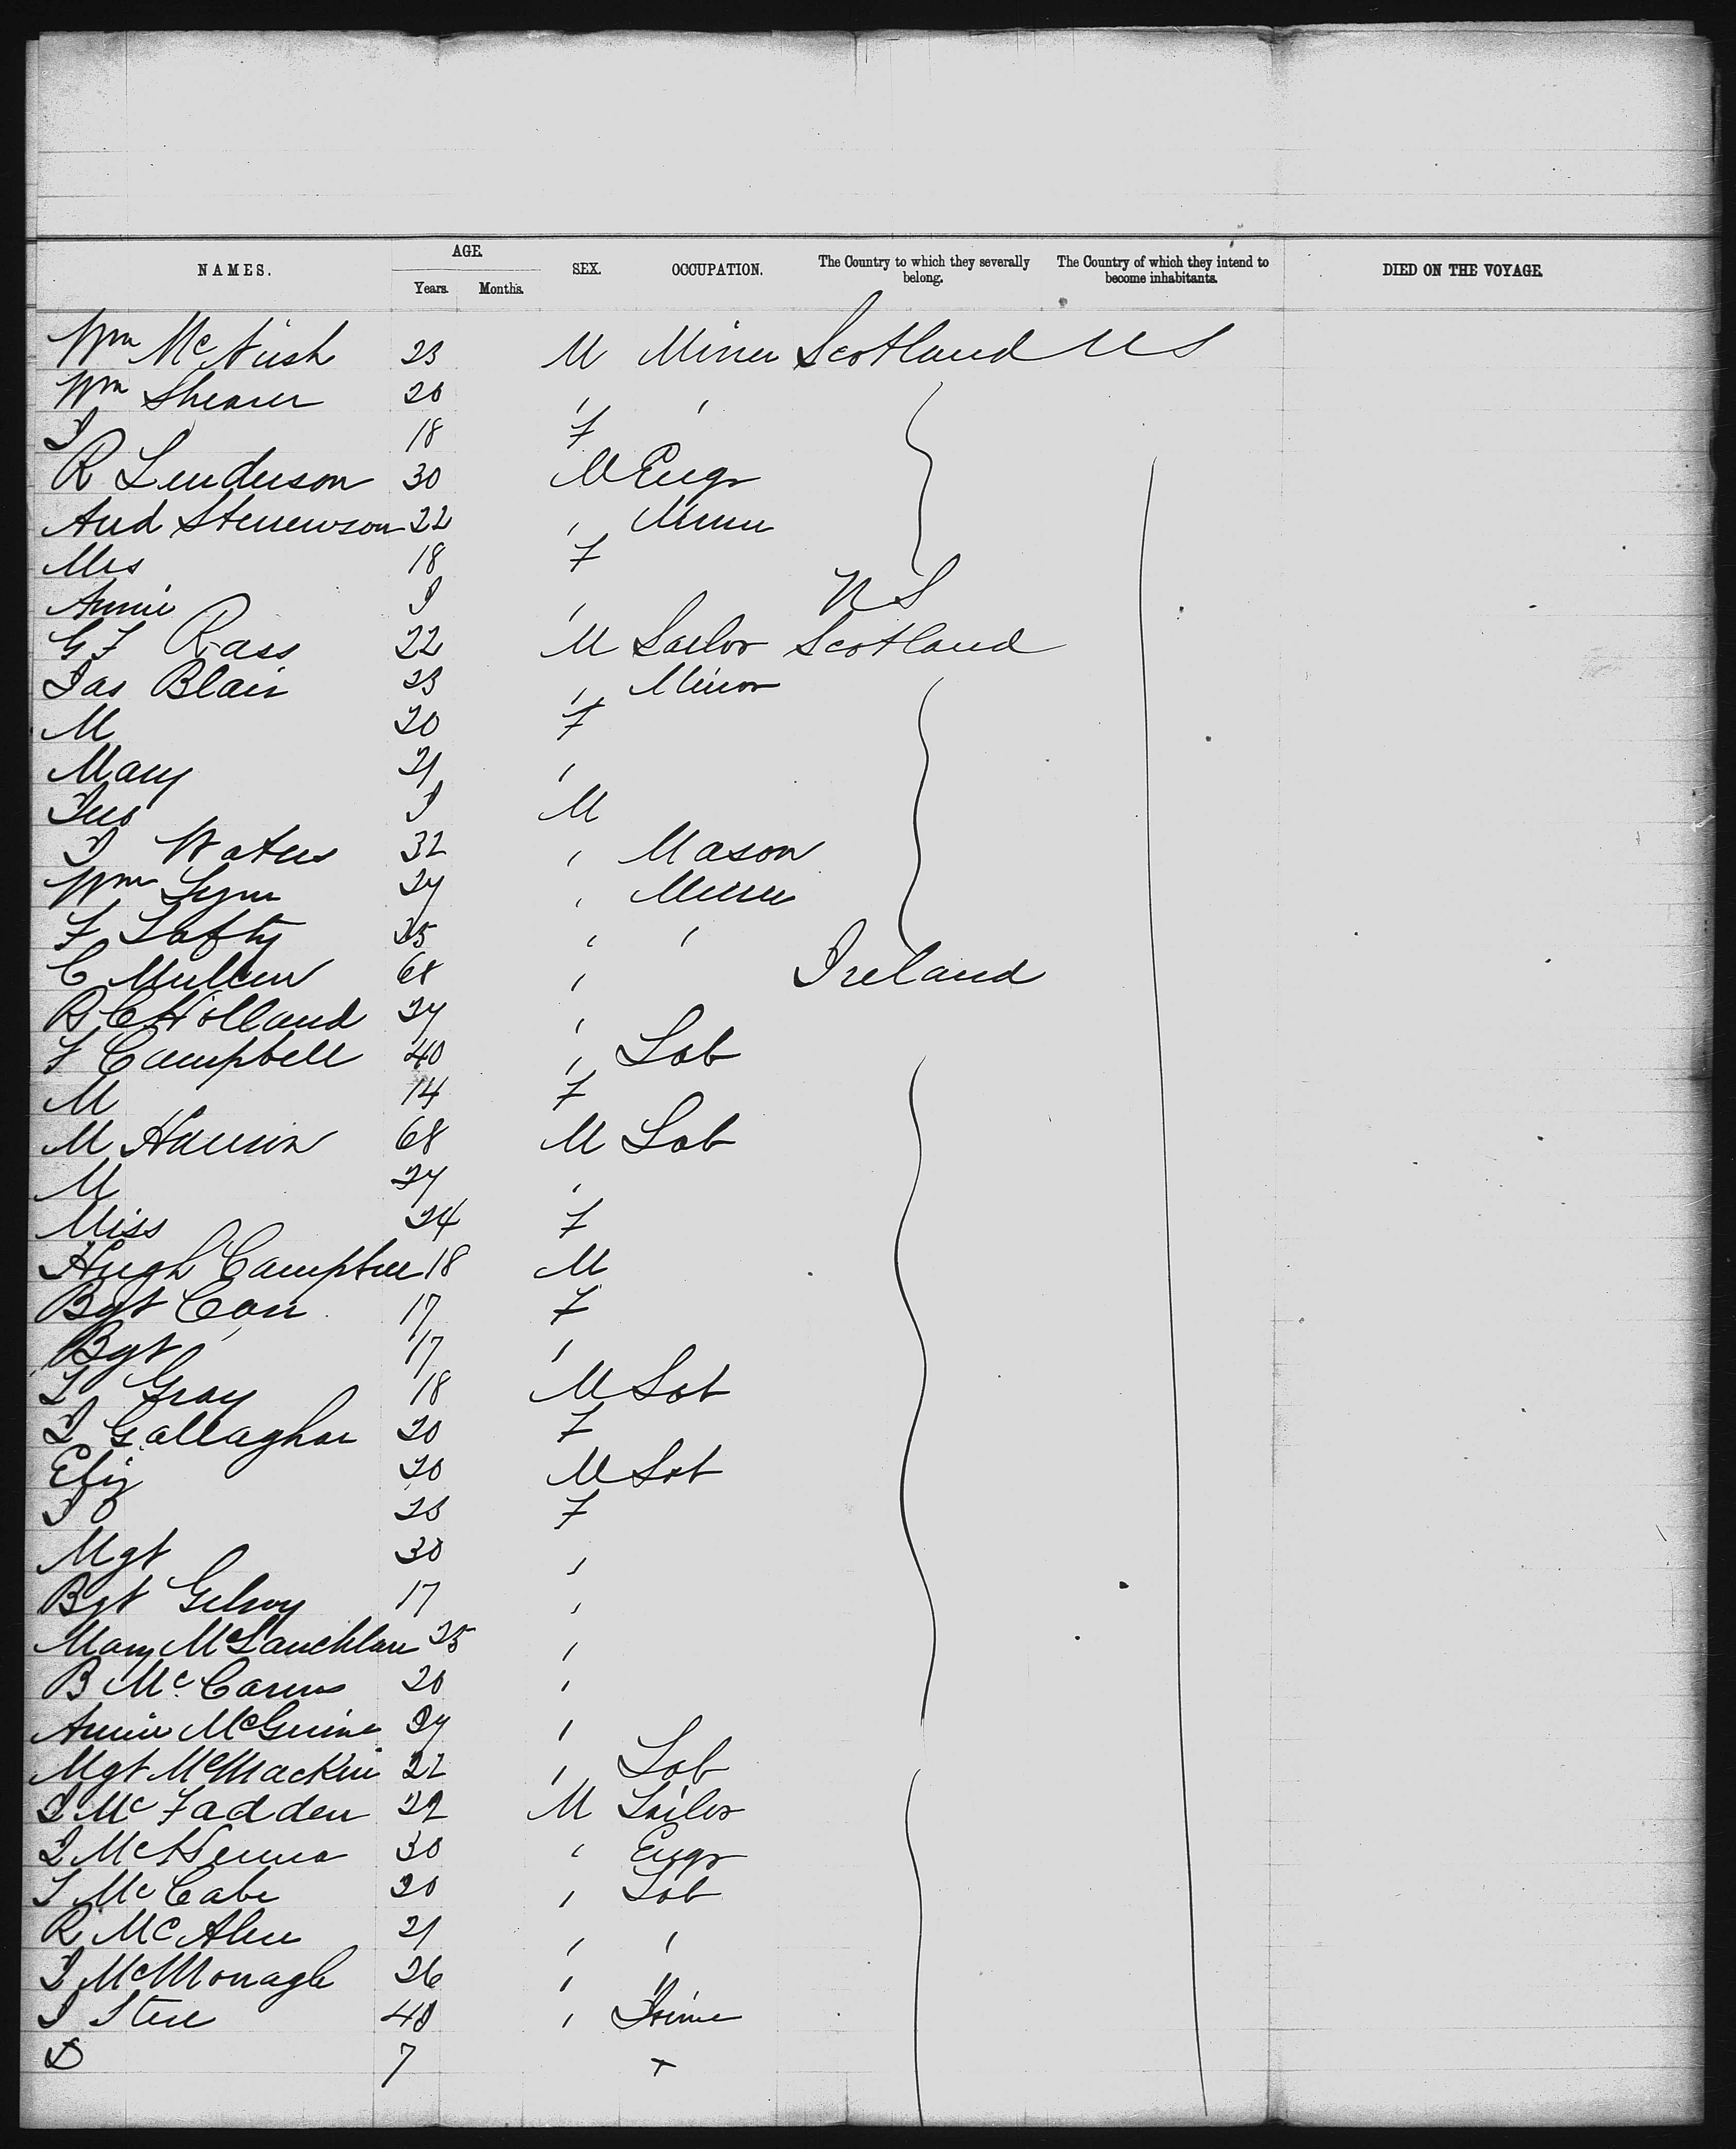 NAMES. AGE. Years. Months. SEX. OCCUPATION. The Country to which they severally belong. The Country of which they intend to become inhabitants. DIED ON THE VOYAGE.
Wm McNish 23 M Miner Scotland US
Wm Shearer 20 , ,
J 18 F
R Lenderson 30 M Engr
And Stevenson 22 , Miner
Mrs 18 F
Annie I , US
G F Rass 22 M Sailor Scotland
Jas Blair 23 , Minor
M 20 F
Mary 21 ,
Jno I M
J Waters 32 , Mason
Wm Lynn 24 , Miner
F Lafty 25 , ,
C Mullen 68 , Ireland
R C Holland 24 ,
F Campbell 40 , Lab
M 14 F
M Hannin 68 M Lab
M 24 ,
Miss 24 F
Hugh Campbell 18 M
Bgt Carr 17 F
Bgt , 17 ,
J Gray 18 M Lab
J Gallagher 20 F
Eliz 20 M Lab
J 20 F
Mgt 30 ,
Bgt Gilroy 17 ,
Mary McLauchlan 25 ,
B McCarns 20 ,
Annie McGuine 24 ,
Mgt McMackin 22 , Lab
J McFadden 22 M Sailor
J McKenna 30 , Engr
J McCabe 20 , Lab
R McAlee 21 , ,
J McMonagle 26 , "
J Steel 40 ,
D 7 +